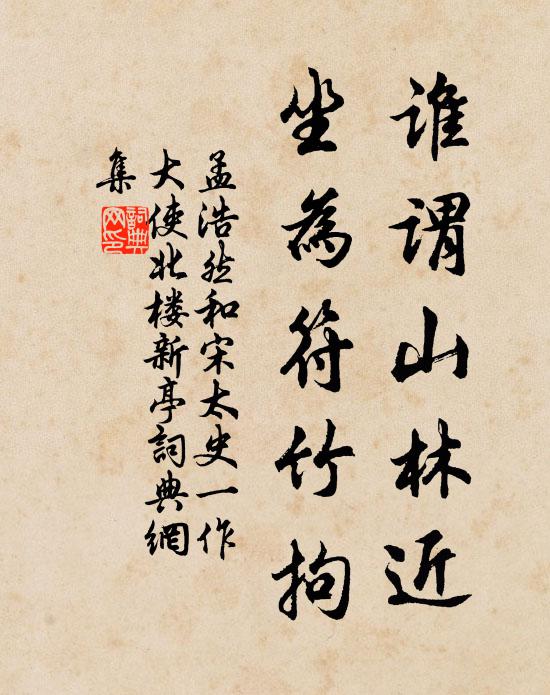 誰謂山林近
坐為符竹拘
孟浩然和宋太史一作
大使北楼新亭詞典網
集
詞典
网印